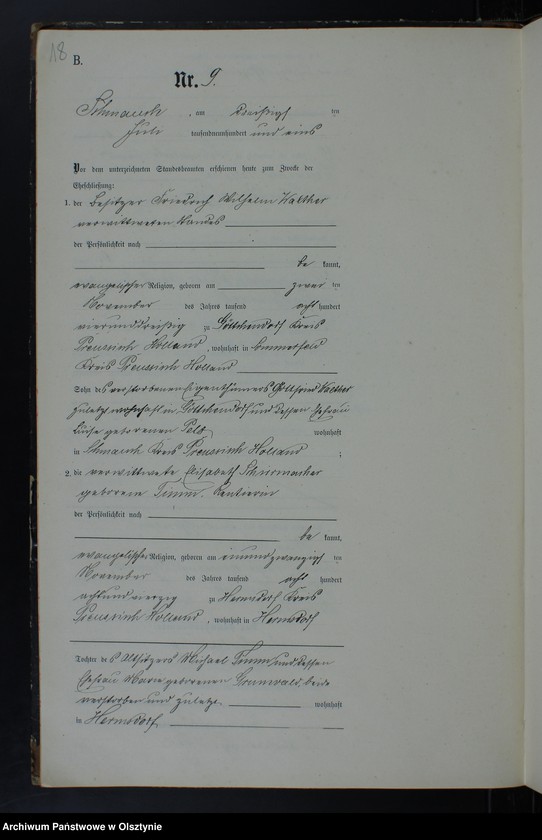 18
B.
Nr. 9.
Schmauch, am dreißigsten
Juli tausendneunhundert und eins
Vor dem unterzeichneten Standesbeamten erschienen heute zum Zwecke der
Eheschließung:
1. der Besitzer Friedrich Wilhelm Walther
verwittweten Standes
der Persönlichkeit nach
be kannt,
evangelischer Religion, geboren am zwei ten
November des Jahres tausend acht hundert
vierunddreißig zu Göttchendorf Kreis
Preussisch Holland, wohnhaft in
Kreis Preussisch Holland
Sohn des verstorbenen Eigenthümers Gottfried Walther
zuletzt wohnhaft in Göttchendorf und dessen Ehefrau
Luise geborenen wohnhaft
in Schmauch Kreis Preussisch Holland;
2. die verwittwete Elisabeth Schumacher
geborene Timm, Rentierin
der Persönlichkeit nach
be kannt,
evangelischer Religion, geboren am einundzwanzigsten
November des Jahres tausend acht hundert
achtundvierzig zu Hermsdorf Kreis
Preussisch Holland, wohnhaft in Hermsdorf
Tochter des Altsitzers Michael Timm und dessen
Ehefrau Marie geborenen Grunwald, beide
verstorben und zuletzt wohnhaft
in Hermsdorf
Archiwum Państwowe w Olsztynie